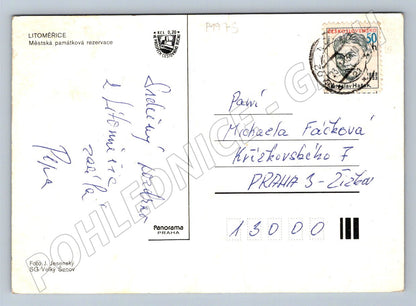 LITOMĚŘICE
Městská památková rezervace
KČS 0,20
Srdečný pozdrav
z Litoměřic
zasílá
Pepa
Foto J. Jesenský
SG Velký Šenov
Panorama
PRAHA
50
h
Paní
Michaela Fáčková
Křížkovského 7
PRAHA 3 - Žižkov
13000
POHLEDNICE